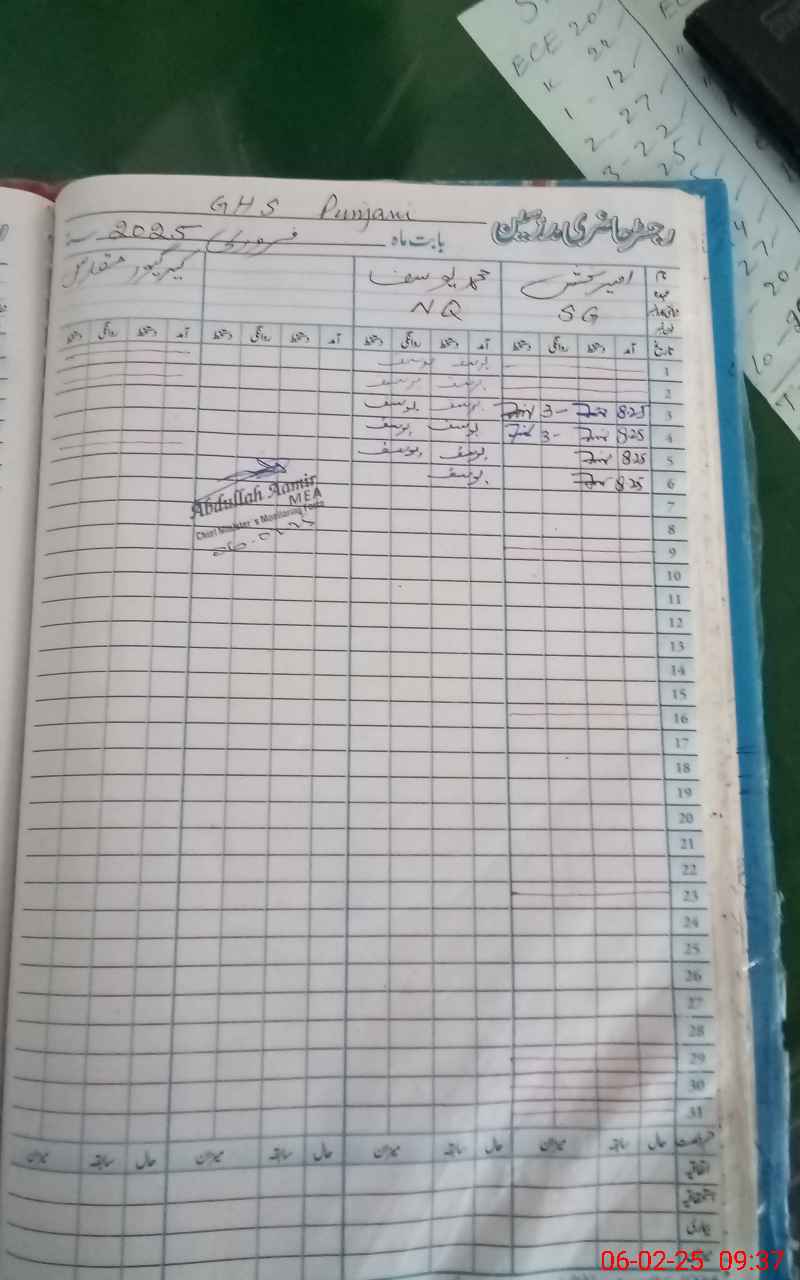 GHS Punjani
رجسٹر حاضری مدرسین
بابت ماہ فروری 2025
نام امیر بخش محمد یوسف
عہدہ SG NQ
تاریخ آمد دستخط روانگی دستخط آمد دستخط روانگی دستخط آمد دستخط روانگی دستخط آمد دستخط روانگی دستخط
1 یوسف یوسف
2 یوسف یوسف
3 8.25 3- یوسف یوسف
4 8.25 3- یوسف یوسف
5 8.25 یوسف یوسف
6 8.25 یوسف
7
8
9
10
11
12
13
14
15
16
17
18
19
20
21
22
23
24
25
26
27
28
29
30
31
Abdullah Aamir
MEA
Chief Minister's Monitoring Force
حال سابقہ میزان حال سابقہ میزان حال سابقہ میزان حال سابقہ میزان
اتفاقیہ
استحقاقیہ
بیماری
ECE 20/
K 22/
1 - 12/
2 - 27/
3 - 22/
06-02-25 09:37